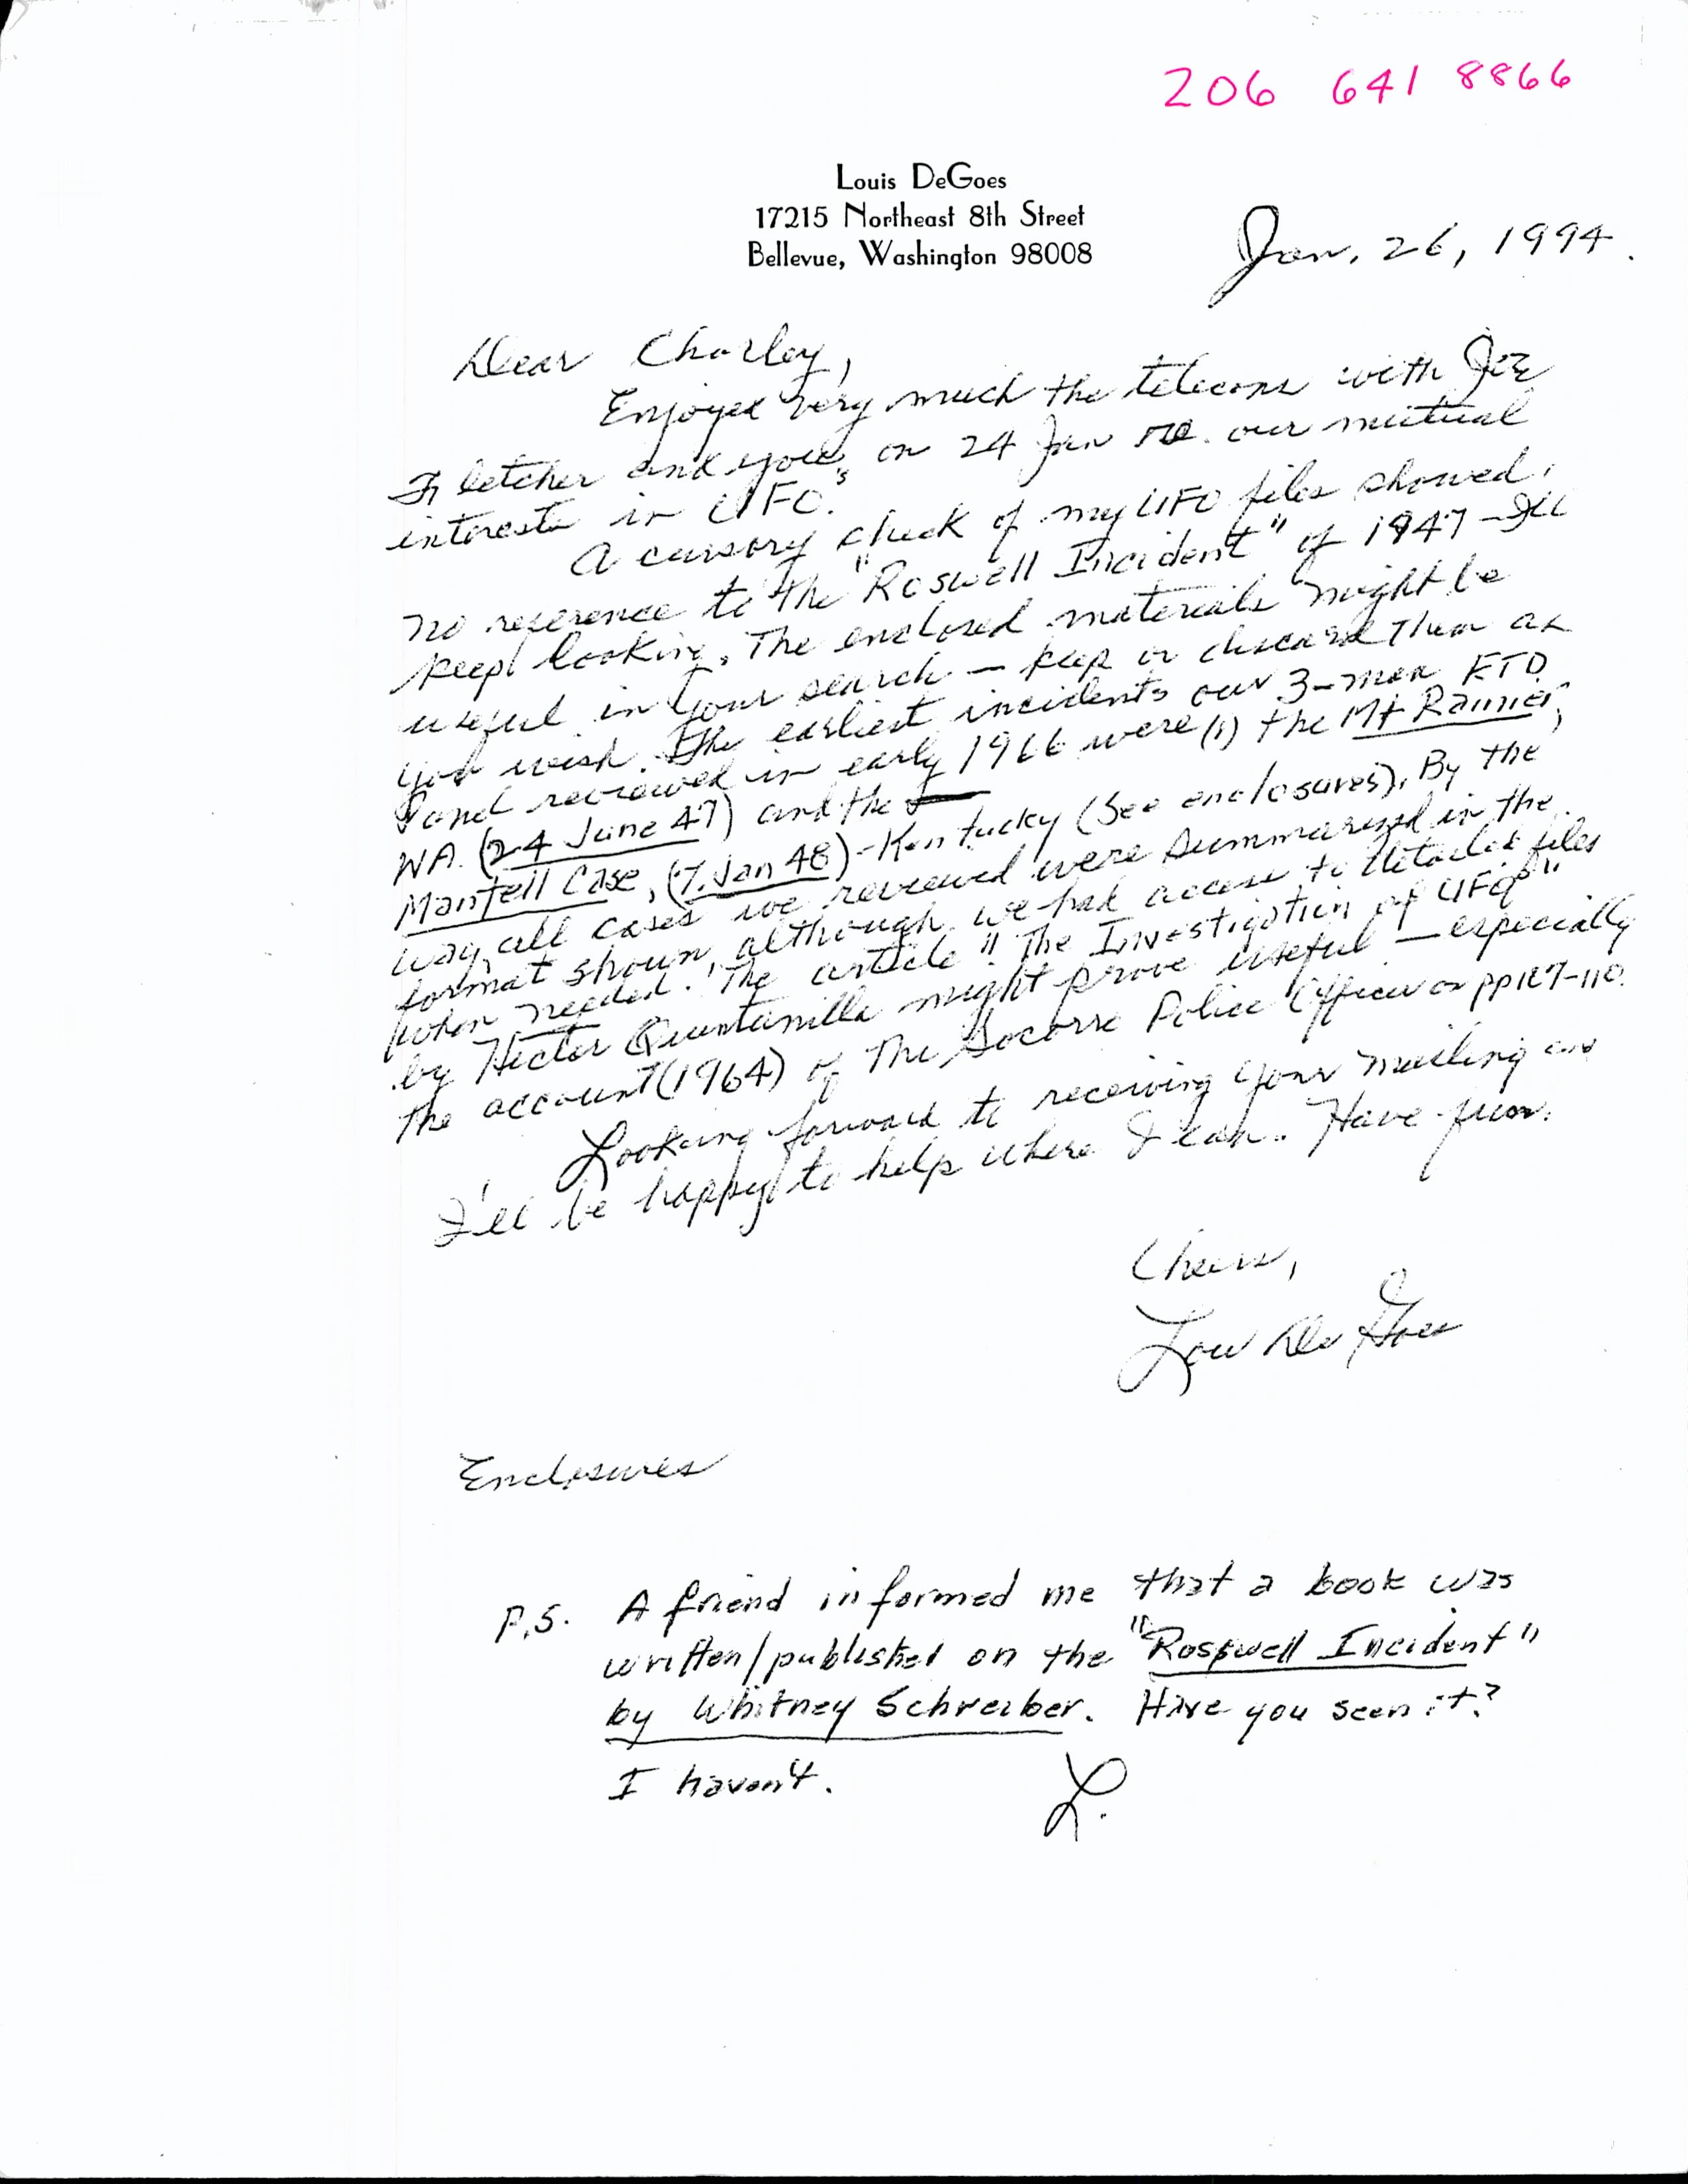 206 641 8866
Louis DeGoes
17215 Northeast 8th Street
Bellevue, Washington 98008
Jan. 26, 1994.
Dear Charley,
Enjoyed very much the telecons with Joe
Fletcher and you, on 24 Jan re. our mutual
interests in UFO's.
A cursory check of my UFO files showed
no reference to the "Roswell Incident" of 1947 - I'll
keep looking. The enclosed materials might be
useful in your search - keep or discard them as
you wish. The earliest incidents our 3-man FTD
Panel reviewed in early 1966 were (1) the Mt Rainier,
WA. (24 June 47) and the
Mantell Case, (7 Jan 48) - Kentucky (See enclosures). By the
way, all cases we reviewed were summarized in the
format shown, although we had access to detailed files
when needed. The article "The Investigation of UFO's"
by Hector Quintanilla might prove useful - especially
the account (1964) of the Socorro Police Officer on pp 107-110.
Looking forward to receiving your mailing and
I'll be happy to help where I can. Have fun.
Cheers,
Lou De Goes
Enclosures
P.S. A friend informed me that a book was
written/published on the "Roswell Incident"
by Whitney Schreiber. Have you seen it?
I haven't. L.